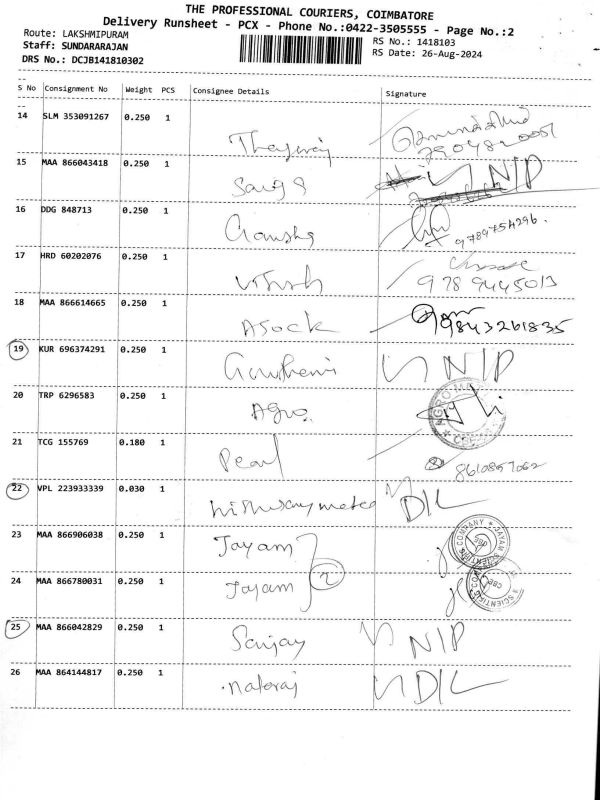 THE PROFESSIONAL COURIERS, COIMBATORE
Delivery Runsheet - PCX - Phone No.:0422-3505555 - Page No.:2
Route: LAKSHMIPURAM
RS No.: 1418103
Staff: SUNDARARAJAN
RS Date: 26-Aug-2024
DRS No.: DCJB141810302
S No Consignment No Weight PCS Consignee Details Signature
14 SLM 353091267 0.250 1
15 MAA 866043418 0.250 1 NIP
16 DDG 848713 0.250 1 9789754296.
17 HRD 60202076 0.250 1 9789445013
18 MAA 866614665 0.250 1 Asock 9843261835
19 KUR 696374291 0.250 1 NIP
20 TRP 6296583 0.250 1 Agro.
21 TCG 155769 0.180 1 Pearl
22 VPL 223933339 0.030 1 DIL
23 MAA 866906038 0.250 1 Jayam
2
24 MAA 866780031 0.250 1 Jayam
25 MAA 866042829 0.250 1 Sanjay NIP
26 MAA 864144817 0.250 1 Nataraj DIL